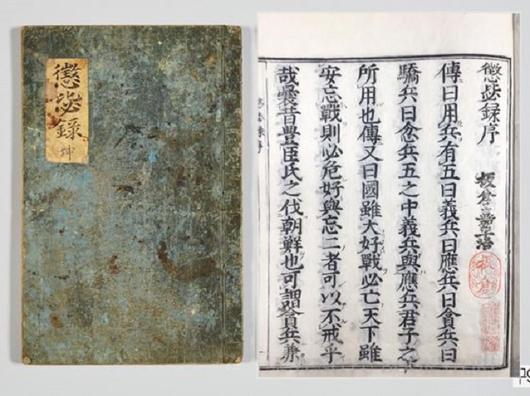 懲毖錄
坤
懲毖録序
傳曰用兵有五曰義兵曰應兵曰貪兵曰
驕兵曰忿兵五之中義兵與應兵君子之
所用也傳又曰國雖大好戰必亡天下雖
安忘戰則必危好與忘二者可以不戒乎
哉曩昔豐臣氏之伐朝鮮也可謂貪兵兼